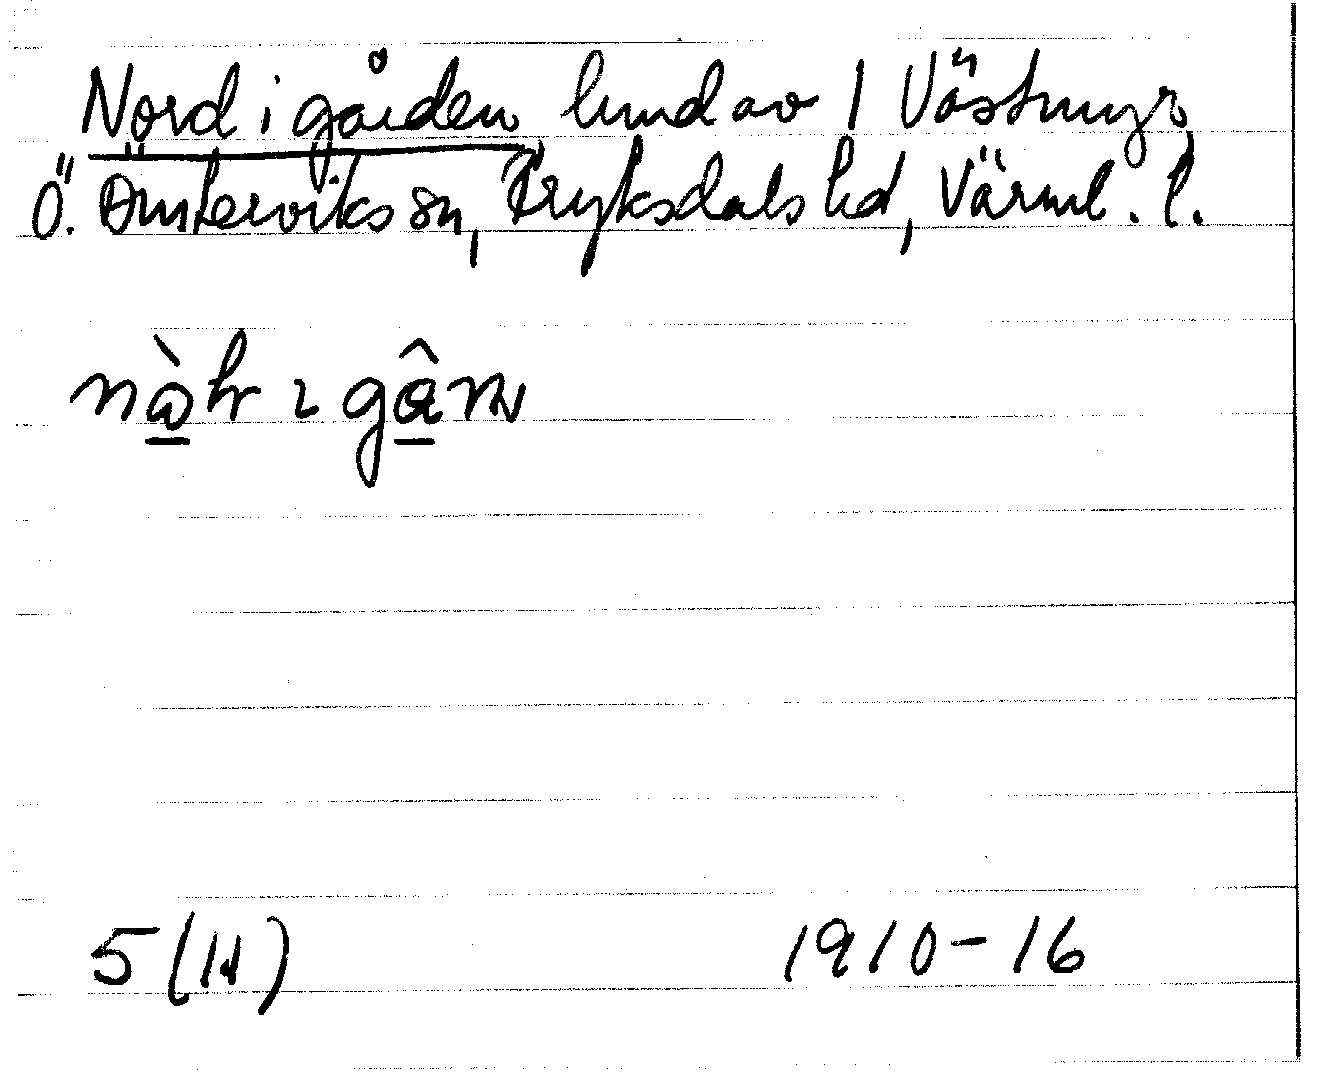 Nord i gården, hmd av 1 Västmyr,
Ö. Ämterviks sn, Fryksdals hd, Värml. l.
nạ̀hr ɩ gậɳ
5 (H) 1910–16